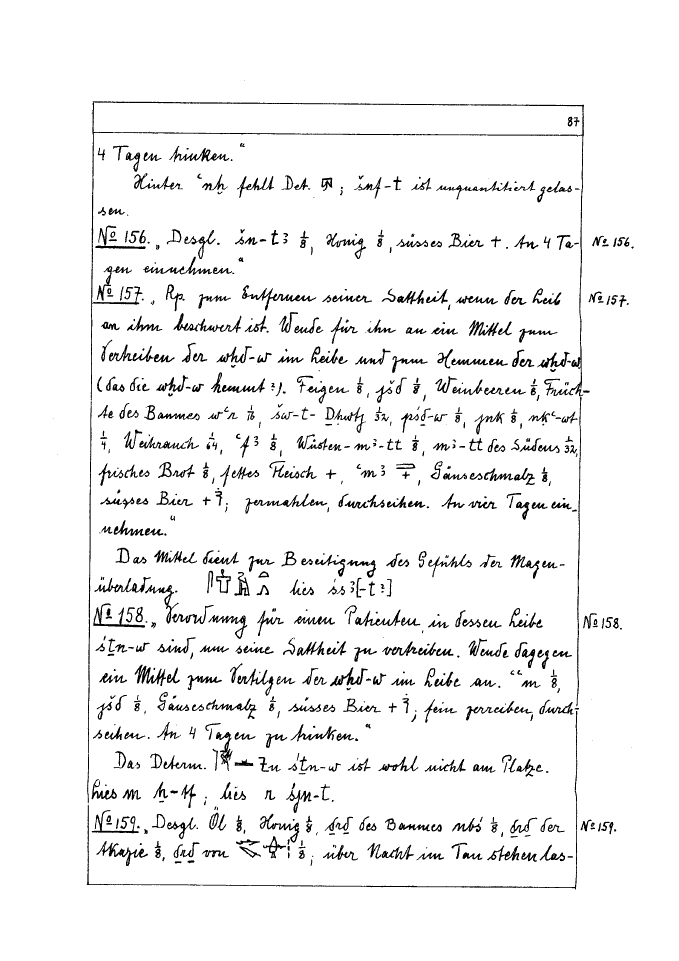 87
4 Tagen trinken."
Hinter ꜥnḫ fehlt Det. ; šnf-t ist unquantitiert gelas-
sen.
No 156. „Desgl. šn-tꜣ 1/8, Honig 1/8, süsses Bier +. An 4 Ta- No 156.
gen einnehmen."
No 157. „Rp zum Entfernen seiner Sattheit, wenn der Leib No 157.
an ihm beschwert ist. Wende für ihn an ein Mittel zum
Vertreiben der wḫd-w im Leibe und zum Hemmen der wḫd-w
(das die wḫd-w hemmt?). Feigen 1/8, jšd 1/8, Weinbeeren 1/8, Früch-
te des Baumes wꜥn 1/16, šw-t-Ḏḥwtj 1/32, psḏ-w 1/8, jnk 1/8, nkꜥ-wt
1/4, Weihrauch 1/64, ꜥfꜣ 1/8, Wüsten-mꜣ-tt 1/8, mꜣ-tt des Südens 1/32,
frisches Brot 1/8, fettes Fleisch +, ꜥmꜣ +, Gänseschmalz 1/8,
süsses Bier +?; zermahlen, durchseihen. An vier Tagen ein-
nehmen."
Das Mittel dient zur Beseitigung des Gefühls der Magen-
überladung. lies śꜣ[-t?]
No 158. „Verordnung für einen Patienten, in dessen Leibe No 158.
śṯn-w sind, um seine Sattheit zu vertreiben. Wende dagegen
ein Mittel zum Vertilgen der wḫd-w im Leibe an. ꜥꜥm 1/8,
jšd 1/8, Gänseschmalz 1/8, süsses Bier +?; fein zerreiben, durch-
seihen. An 4 Tagen zu trinken."
Das Determ. zu śṯn-w ist wohl nicht am Platze.
Lies m ẖ-t-f; lies r śjn-t.
No 159. „Desgl. Öl 1/8, Honig 1/8, ḏrḏ des Baumes nbś 1/8, ḏrḏ der No 159.
Akazie 1/8, ḏrḏ von 1/8; über Nacht im Tau stehen las-